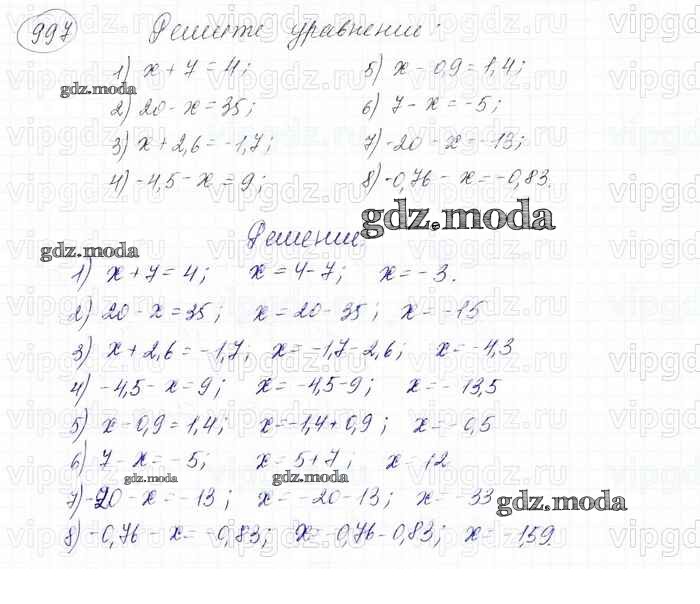 997 Решите уравнение:
1) x + 7 = 4; 5) x - 0,9 = 1,4;
gdz.moda
2) 20 - x = 35; 6) 7 - x = -5;
3) x + 2,6 = -1,7; 7) -20 - x = -13;
4) -4,5 - x = 9; 8) -0,76 - x = -0,83.
gdz.moda
Решение:
gdz.moda
1) x + 7 = 4; x = 4 - 7; x = -3.
2) 20 - x = 35; x = 20 - 35; x = -15
3) x + 2,6 = -1,7; x = -1,7 - 2,6; x = -4,3
4) -4,5 - x = 9; x = -4,5 - 9; x = -13,5
5) x - 0,9 = 1,4; x = -1,4 + 0,9; x = -0,5
6) 7 - x = -5; x = 5 + 7; x = 12
gdz.moda gdz.moda
7) -20 - x = -13; x = -20 - 13; x = -33
gdz.moda
8) -0,76 - x = -0,83; x = -0,76 - 0,83; x = -1,59.